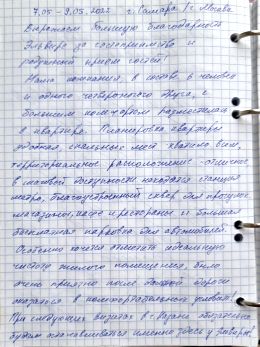 7.05 - 9.05.2022 г. Самара / г. Москва
Выражаем большую благодарность
Эльвире за гостеприимство и
радушный прием гостей!
Наша компания, в составе человек
и одного четвероногого друга, с
большим комфортом разместились
в квартире. Планировка квартиры
удобная, спальных мест хватило всем,
территориальное расположение отличное
в шаговой доступности находятся станция
метро, благоустроенный сквер для прогулок
магазины, кафе и рестораны и большая
бесплатная парковка для автомобилей.
Особенно хочется отметить идеальную
чистоту жилого помещения, было
очень приятно после долгой дороги
оказаться в комфортабельных условиях!
При следующих визитах в г. Казань обязательно
будем останавливаться именно здесь у Эльвиры!